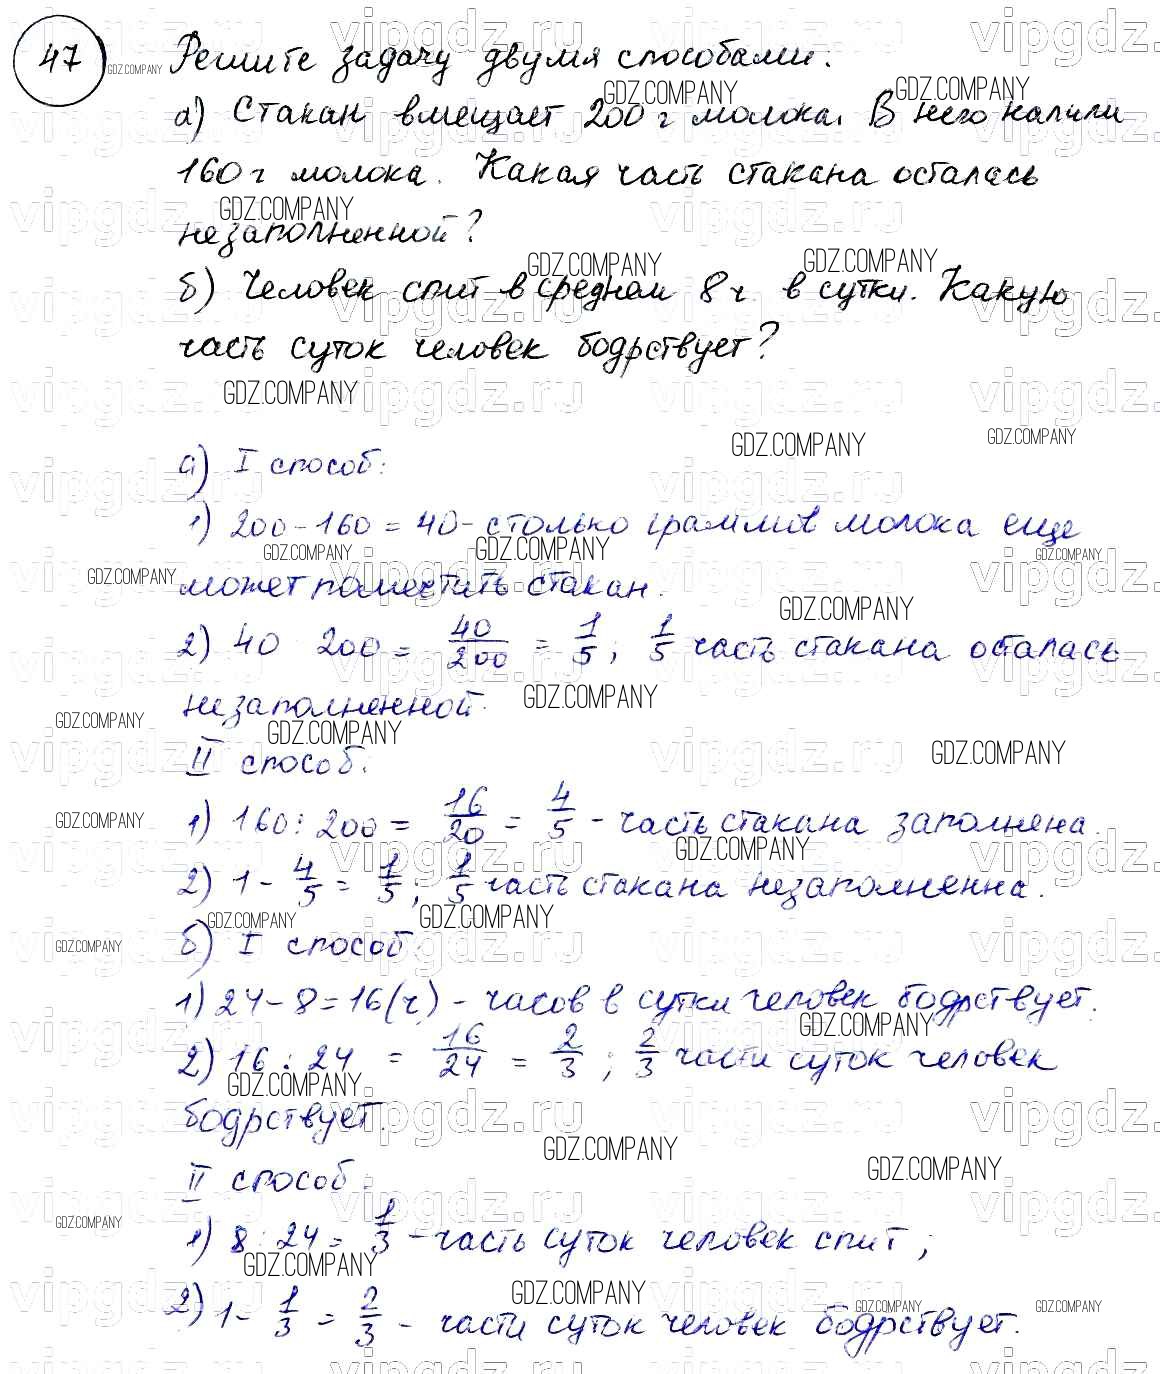 47) Решите задачу двумя способами:
а) Стакан вмещает 200 г молока. В него налили
160 г молока. Какая часть стакана осталась
незаполненной?
б) Человек спит в среднем 8 ч в сутки. Какую
часть суток человек бодрствует?
а) I способ:
1) 200 - 160 = 40 - столько граммов молока еще
может поместить стакан.
2) 40 200 = 40/200 = 1/5; 1/5 часть стакана осталась
незаполненной.
II способ:
1) 160 : 200 = 16/20 = 4/5 - часть стакана заполнена.
2) 1 - 4/5 = 1/5; 1/5 часть стакана незаполненна.
б) I способ
1) 24 - 8 = 16 (ч) - часов в сутки человек бодрствует.
2) 16 : 24 = 16/24 = 2/3; 2/3 части суток человек
бодрствует.
II способ:
1) 8 : 24 = 1/3 - часть суток человек спит;
2) 1 - 1/3 = 2/3 - части суток человек бодрствует.
GDZ.COMPANY
vipgdz.ru